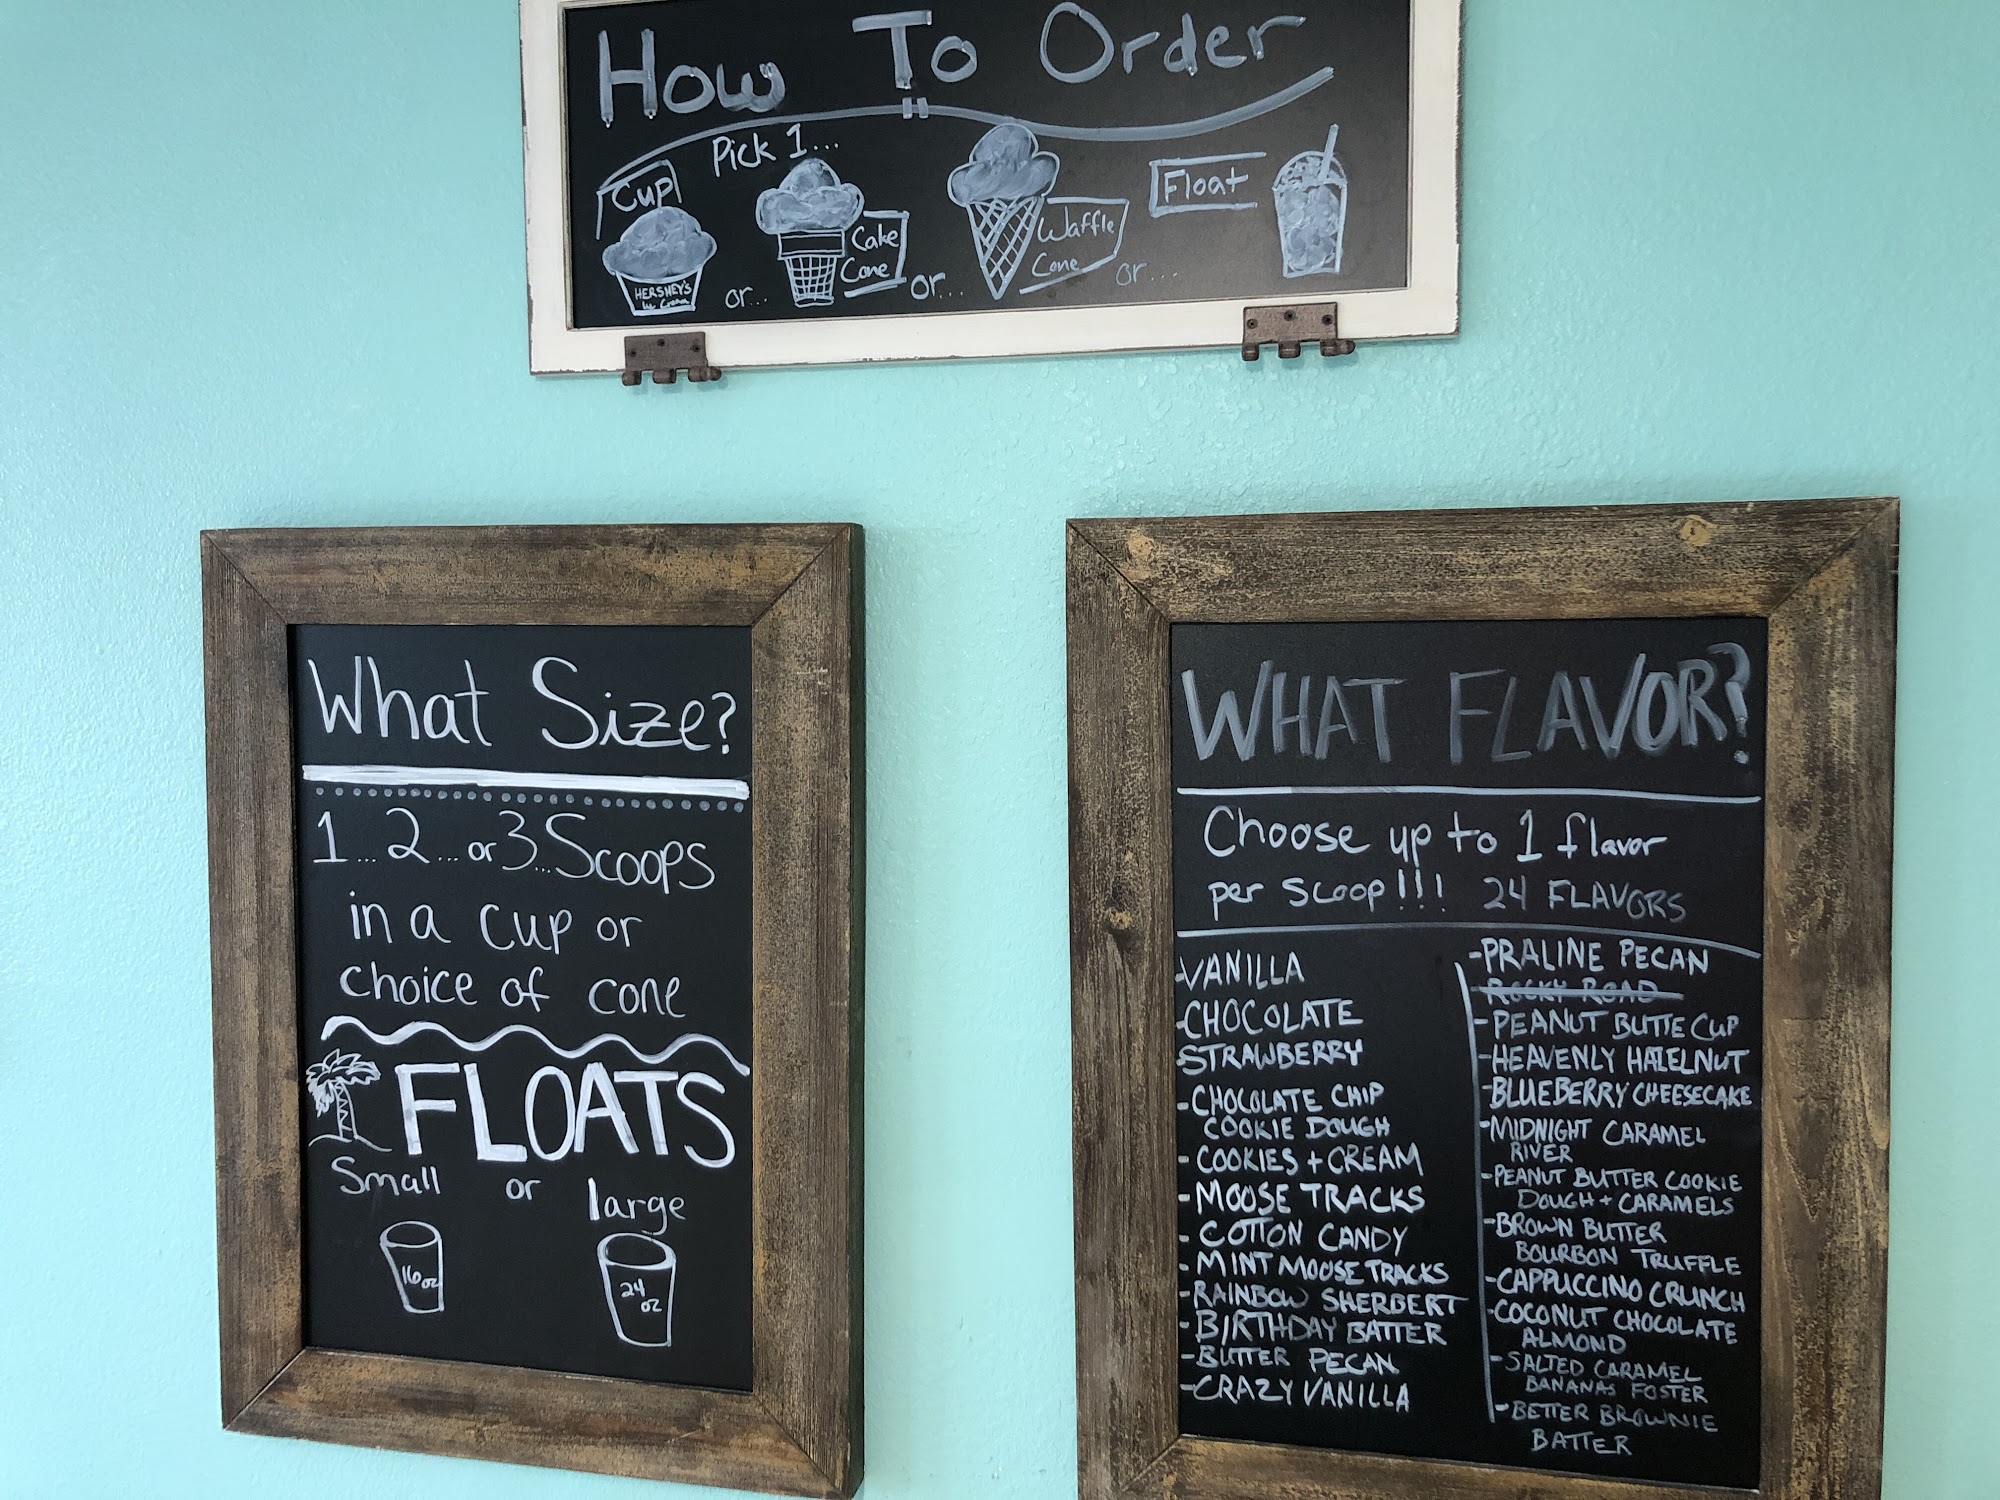 How To Order
Pick 1...
Cup
HERSHEY'S
Ice Cream
or...
Cake
Cone
or...
Waffle
Cone
or...
Float
What Size?
1... 2... or 3... Scoops
in a cup or
choice of cone
FLOATS
Small or large
16 oz
24
oz
WHAT FLAVOR?
Choose up to 1 flavor
per scoop!!! 24 FLAVORS
-VANILLA
-CHOCOLATE
-STRAWBERRY
-CHOCOLATE CHIP
COOKIE DOUGH
-COOKIES + CREAM
-MOOSE TRACKS
-COTTON CANDY
-MINT MOOSE TRACKS
-RAINBOW SHERBERT
-BIRTHDAY BATTER
-BUTTER PECAN
-CRAZY VANILLA
-PRALINE PECAN
-ROCKY ROAD
-PEANUT BUTTE CUP
-HEAVENLY HAZELNUT
-BLUEBERRY CHEESECAKE
-MIDNIGHT CARAMEL
RIVER
-PEANUT BUTTER COOKIE
DOUGH + CARAMELS
-BROWN BUTTER
BOURBON TRUFFLE
-CAPPUCCINO CRUNCH
-COCONUT CHOCOLATE
ALMOND
-SALTED CARAMEL
BANANAS FOSTER
-BETTER BROWNIE
BATTER